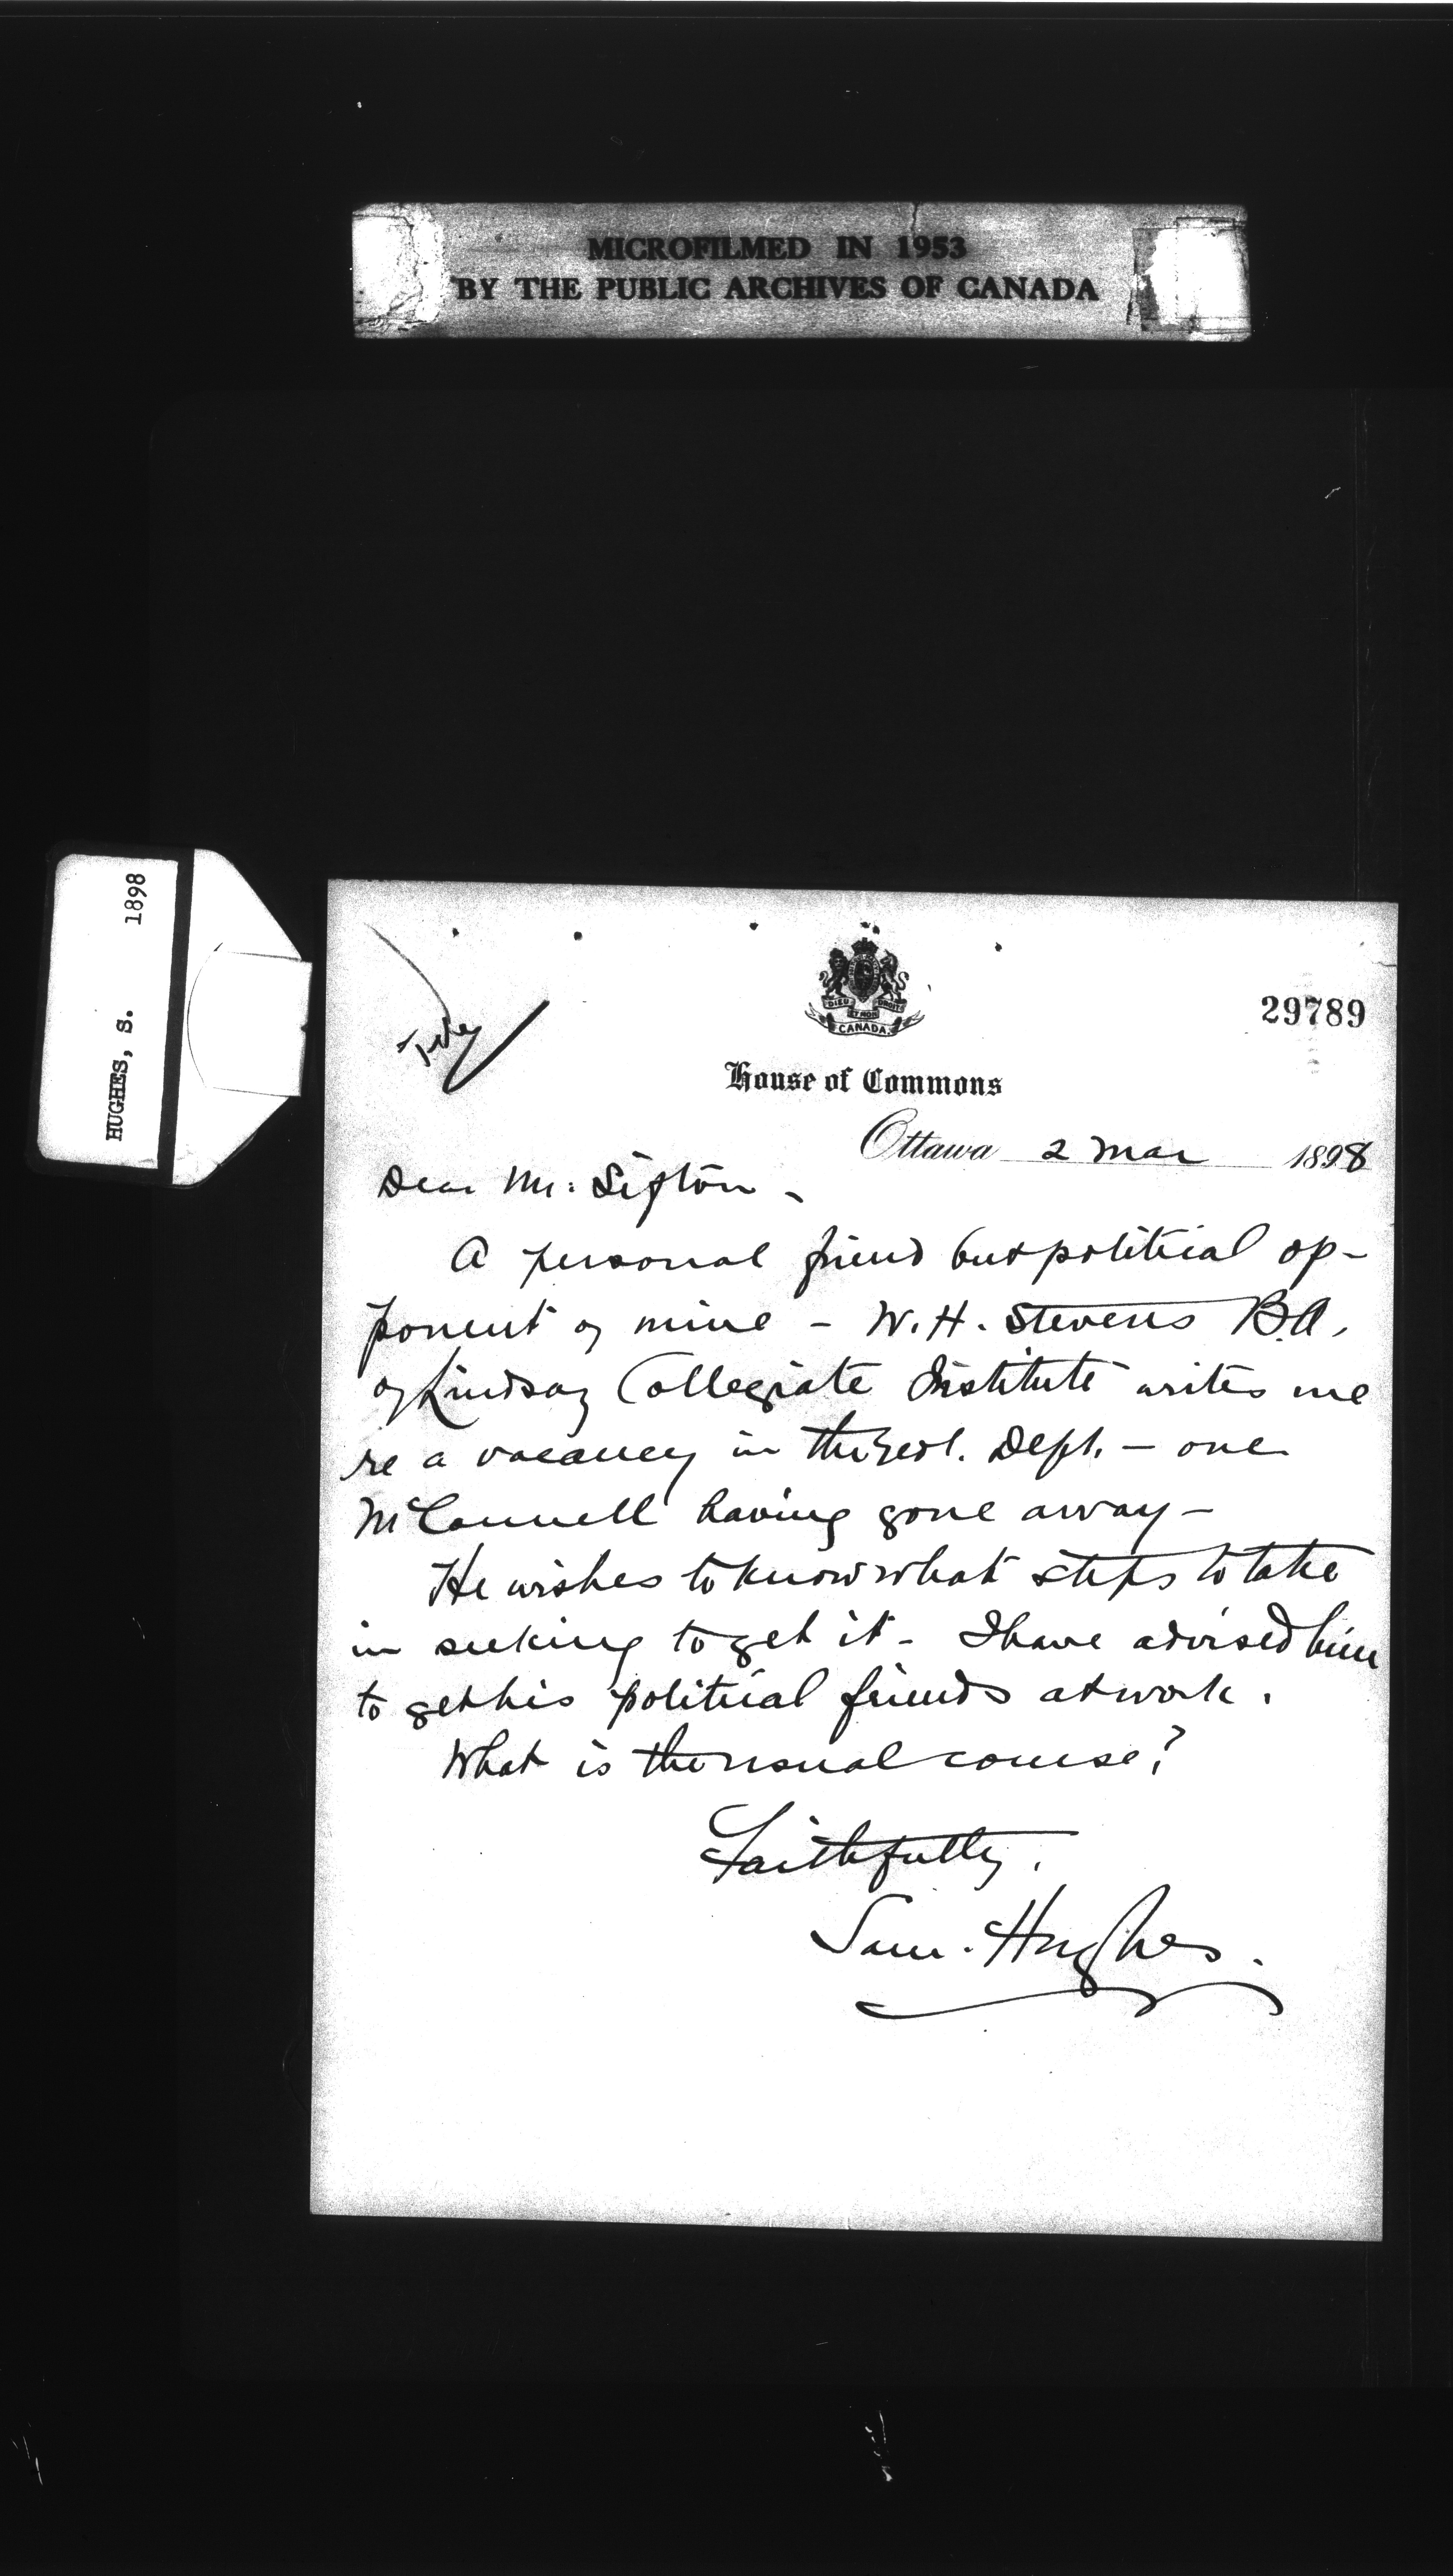 MICROFILMED IN 1953
BY THE PUBLIC ARCHIVES OF CANADA
HUGHES, S. 1898
DIEU ET MON DROIT
CANADA
29789
House of Commons
Ottawa 2 Mar 1898
Dear Mr. Sifton -
A personal friend but political op-
ponent of mine - W. H. Stevens B.A.
of Lindsay Collegiate Institute writes me
re a vacancy in the Geol. Dept. - one
McConnell having gone away -
He wishes to know what steps to take
in seeking to get it - I have advised him
to get his political friends at work.
What is the usual course?
Faithfully,
Sam. Hughes.